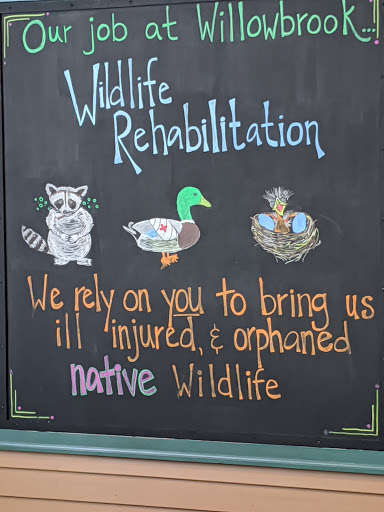 Our job at Willowbrook...
Wildlife
Rehabilitation
We rely on you to bring us
ill injured, & orphaned
native Wildlife